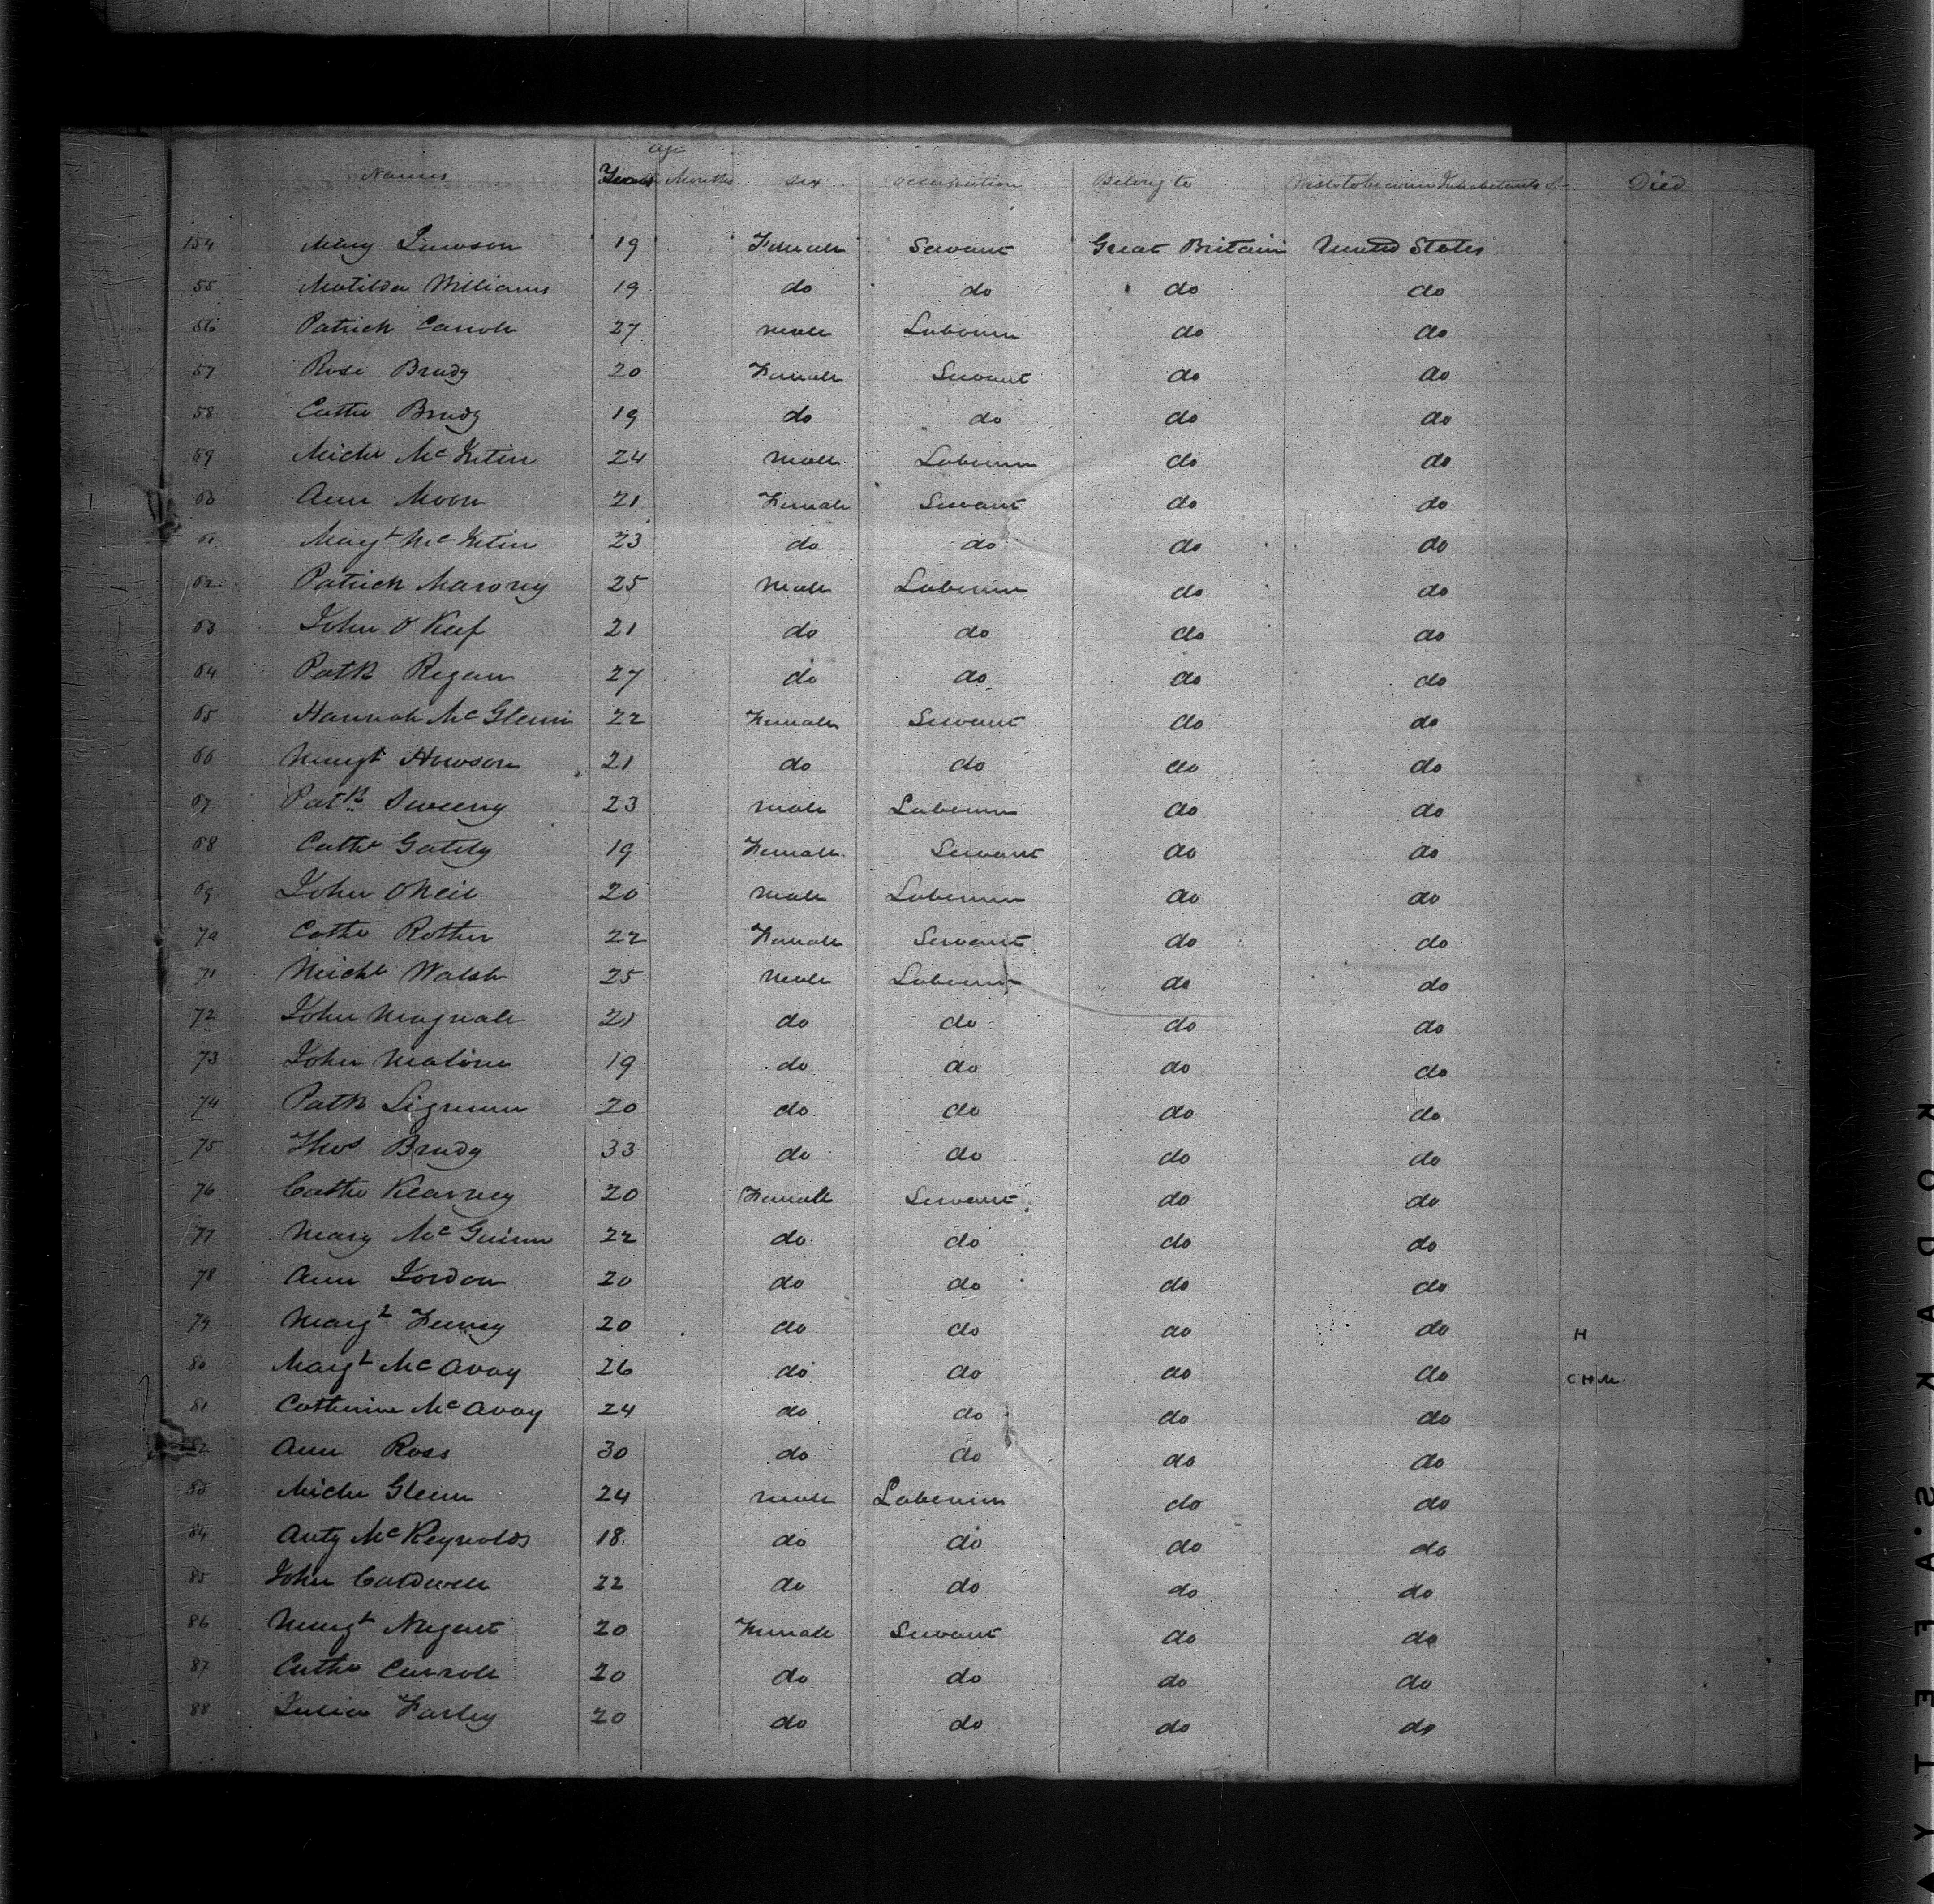 Age
Names Years Months Sex Occupation Belong to Wish to become Inhabitants of Died
154 Mary Lawson 19 Female Servant Great Britain United States
55 Matilda Williams 19 do do do do
56 Patrick Carroll 27 male Labourer do do
57 Rose Brady 20 Female Servant do do
58 Cathe Brady 19 do do do do
59 Michl Mc 24 male Labourer do do
60 Ann Moon 21 Female Servant do do
61 Margt Mc 23 do do do do
62 Patrick Marony 25 male Labourer do do
63 John O Keef 21 do do do do
64 Patk Regan 27 do do do do
65 Hannah Mc Glenn 22 Female Servant do do
66 Margt Howson 21 do do do do
67 Patk Sweeny 23 male Labourer do do
68 Cathe Gately 19 Female Servant do do
69 John ONeil 20 male Labourer do do
70 Cathe 22 Female Servant do do
71 Michl Walsh 25 male Labourer do do
72 John 21 do do do do
73 John Malone 19 do do do do
74 Patk 20 do do do do
75 Thos Brady 33 do do do do
76 Cathe Kearney 20 Female Servant do do
77 Mary Mc Guinn 22 do do do do
78 Ann Jordon 20 do do do do
79 Margt Feeney 20 do do do do H
80 Margt Mc Avoy 26 do do do do
81 Catherine Mc Avoy 24 do do do do
82 Ann Ross 30 do do do do
83 Michl Glenn 24 male Labourer do do
84 Anty Mc Reynolds 18 do do do do
85 John Caldwell 22 do do do do
86 Margt Nugent 20 Female Servant do do
87 Cathe Carroll 20 do do do do
88 Julia Farley 20 do do do do